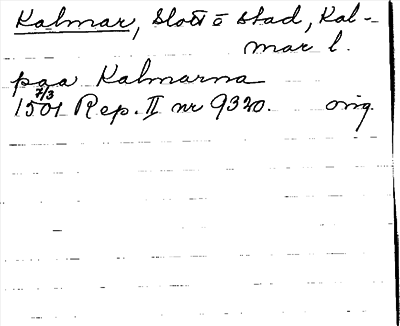 Kalmar, Slott o stad, Kal-
mar l.
paa Kalmarna
7/3
1501 Rep. II nr 9320. orig.